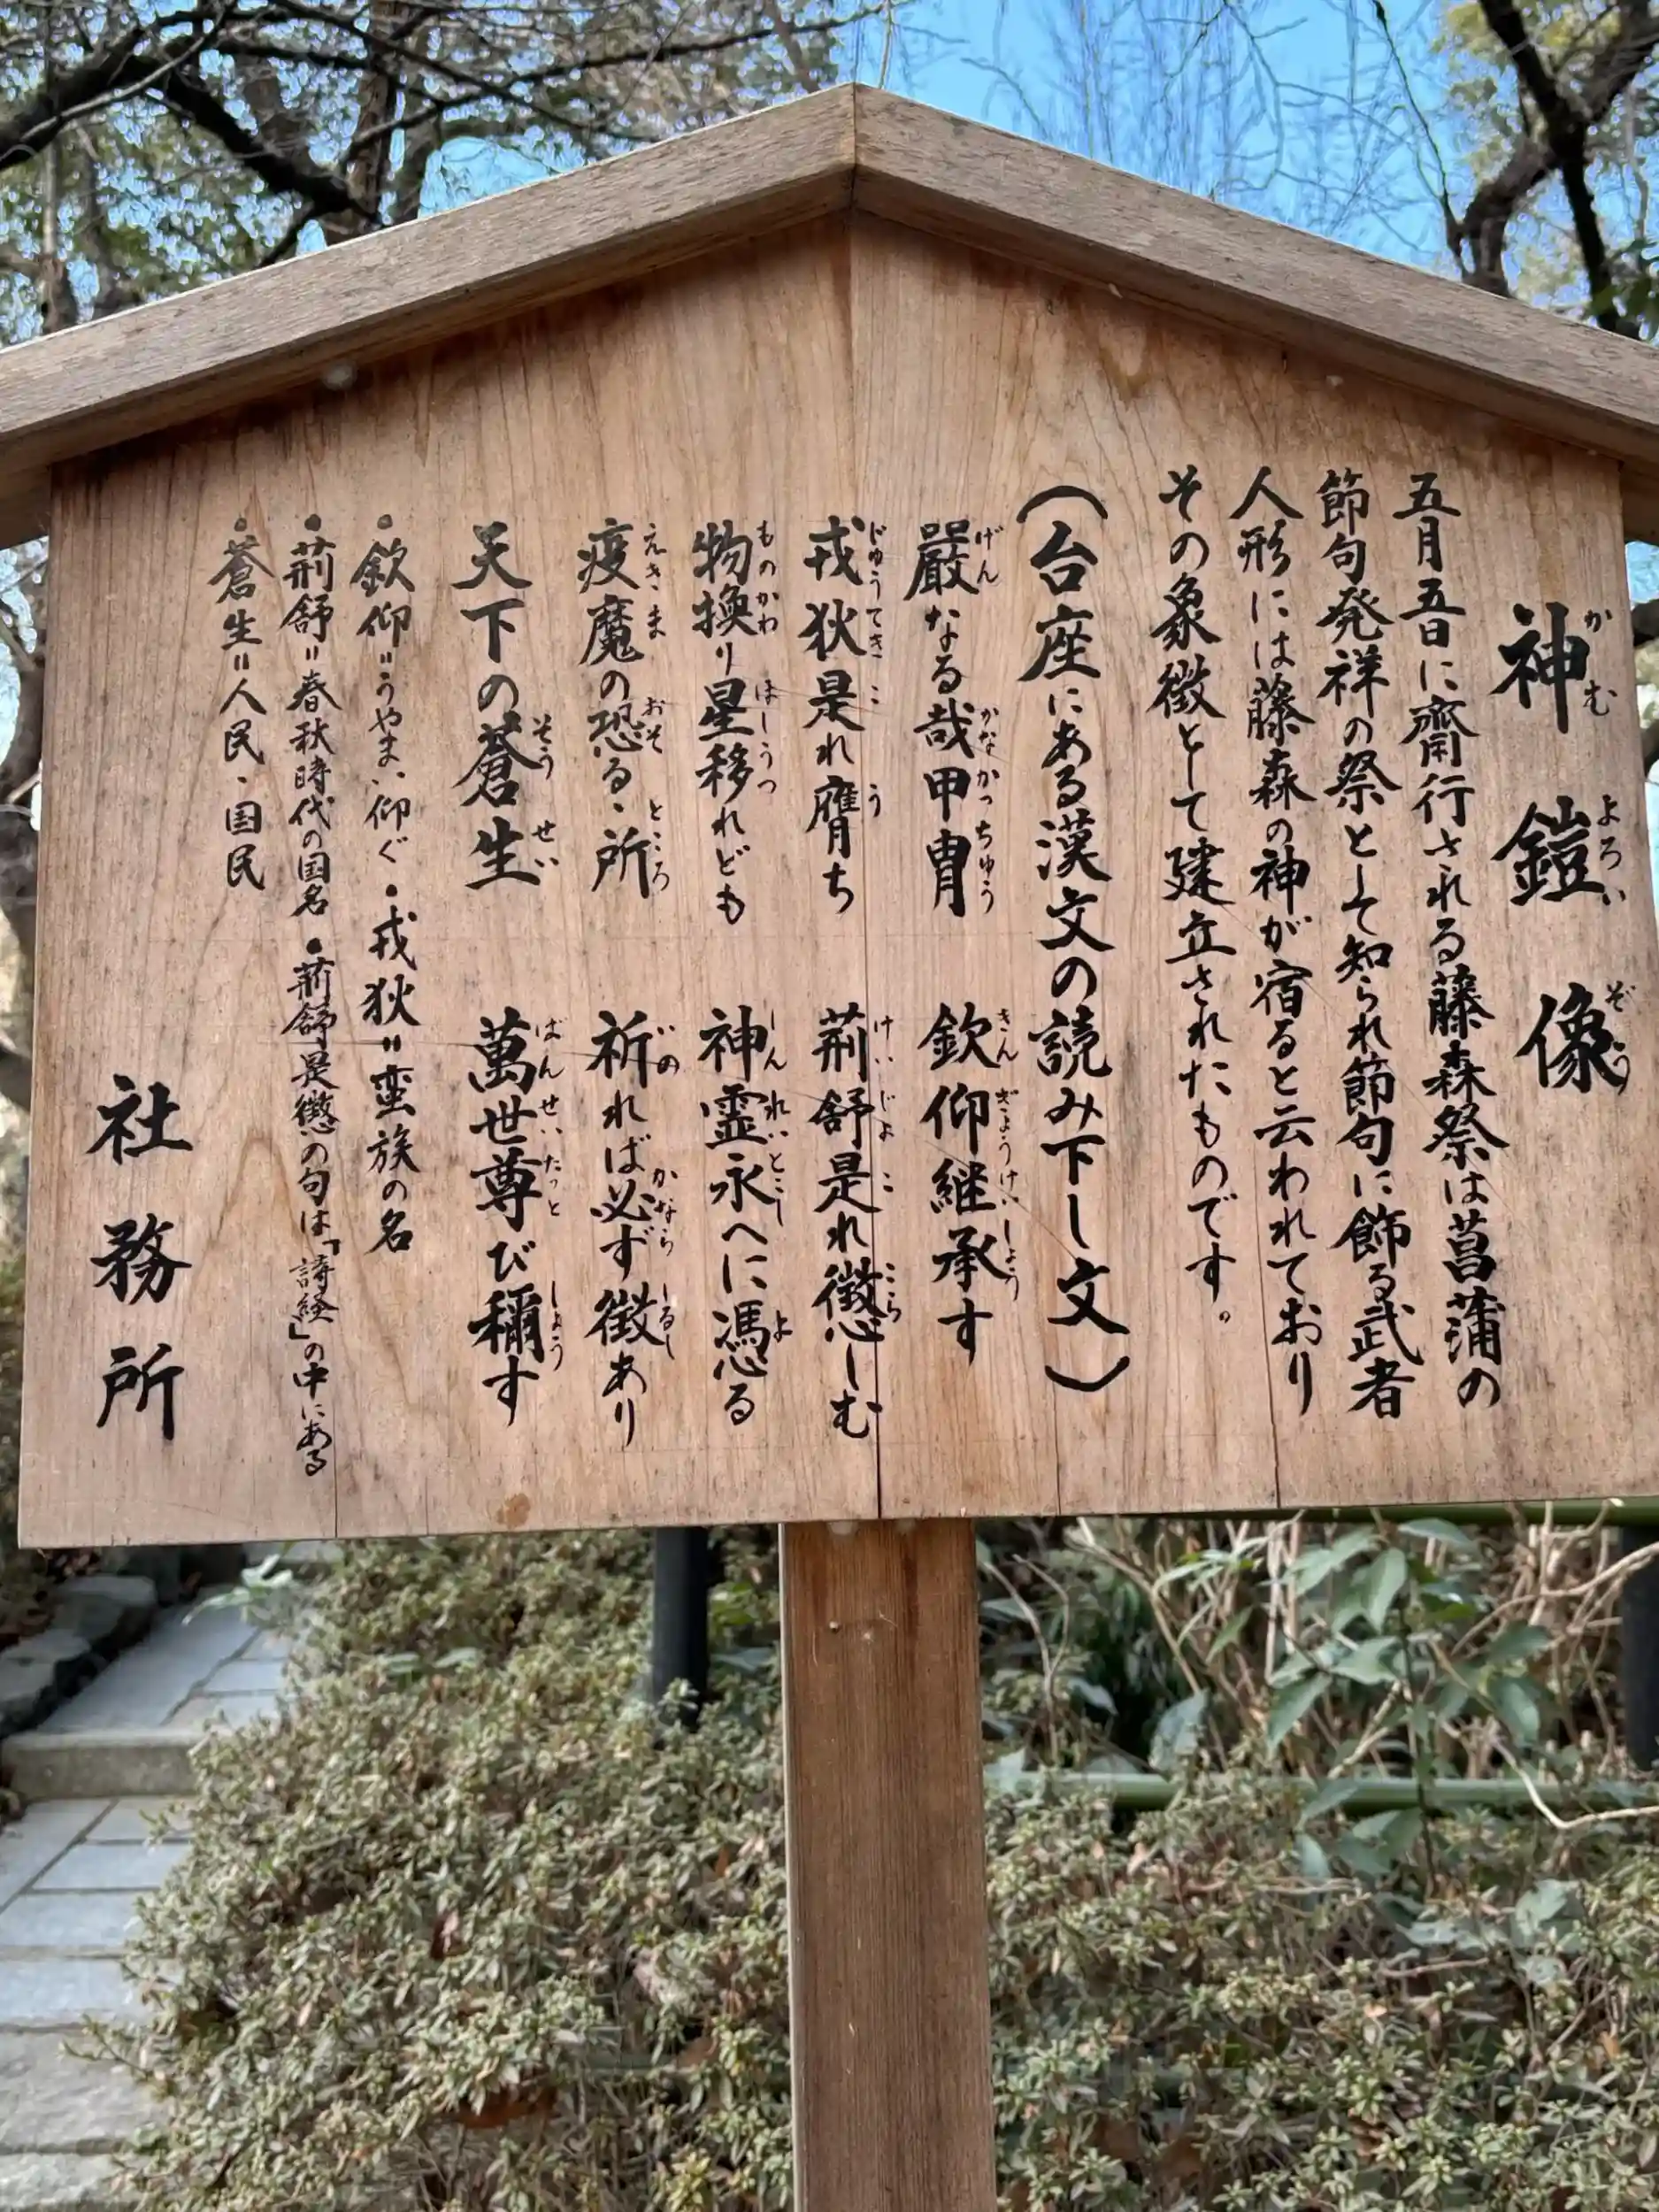 神鎧像
五月五日に齋行される藤森祭は菖蒲の
節句発祥の祭として知られ節句に飾る武者
人形には藤森の神が宿ると云われており
その象徴として建立されたものです。
(台座にある漢文の読み下し文)
嚴なる哉甲冑 欽仰継承す
戎狄是れ膺ち 荊舒是れ懲しむ
物換り星移れども 神霊永へに馮る
疫魔の恐るゝ所 祈れば必ず徴あり
天下の蒼生 萬世尊び稱す
・欽仰=うやまい仰ぐ ・戎狄=蛮族の名
・荊舒=春秋時代の国名 ・荊舒是懲の句は「詩経」の中にある
・蒼生=人民、国民
社務所